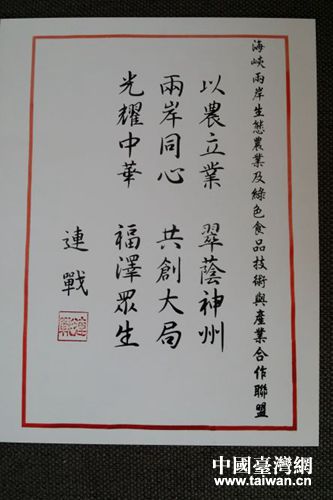 海峽兩岸生態農業及綠色食品技術與產業合作聯盟
以農立業 翠蔭神州
兩岸同心 共創大局
光耀中華 福澤眾生
連戰
中國臺灣網
www.taiwan.cn